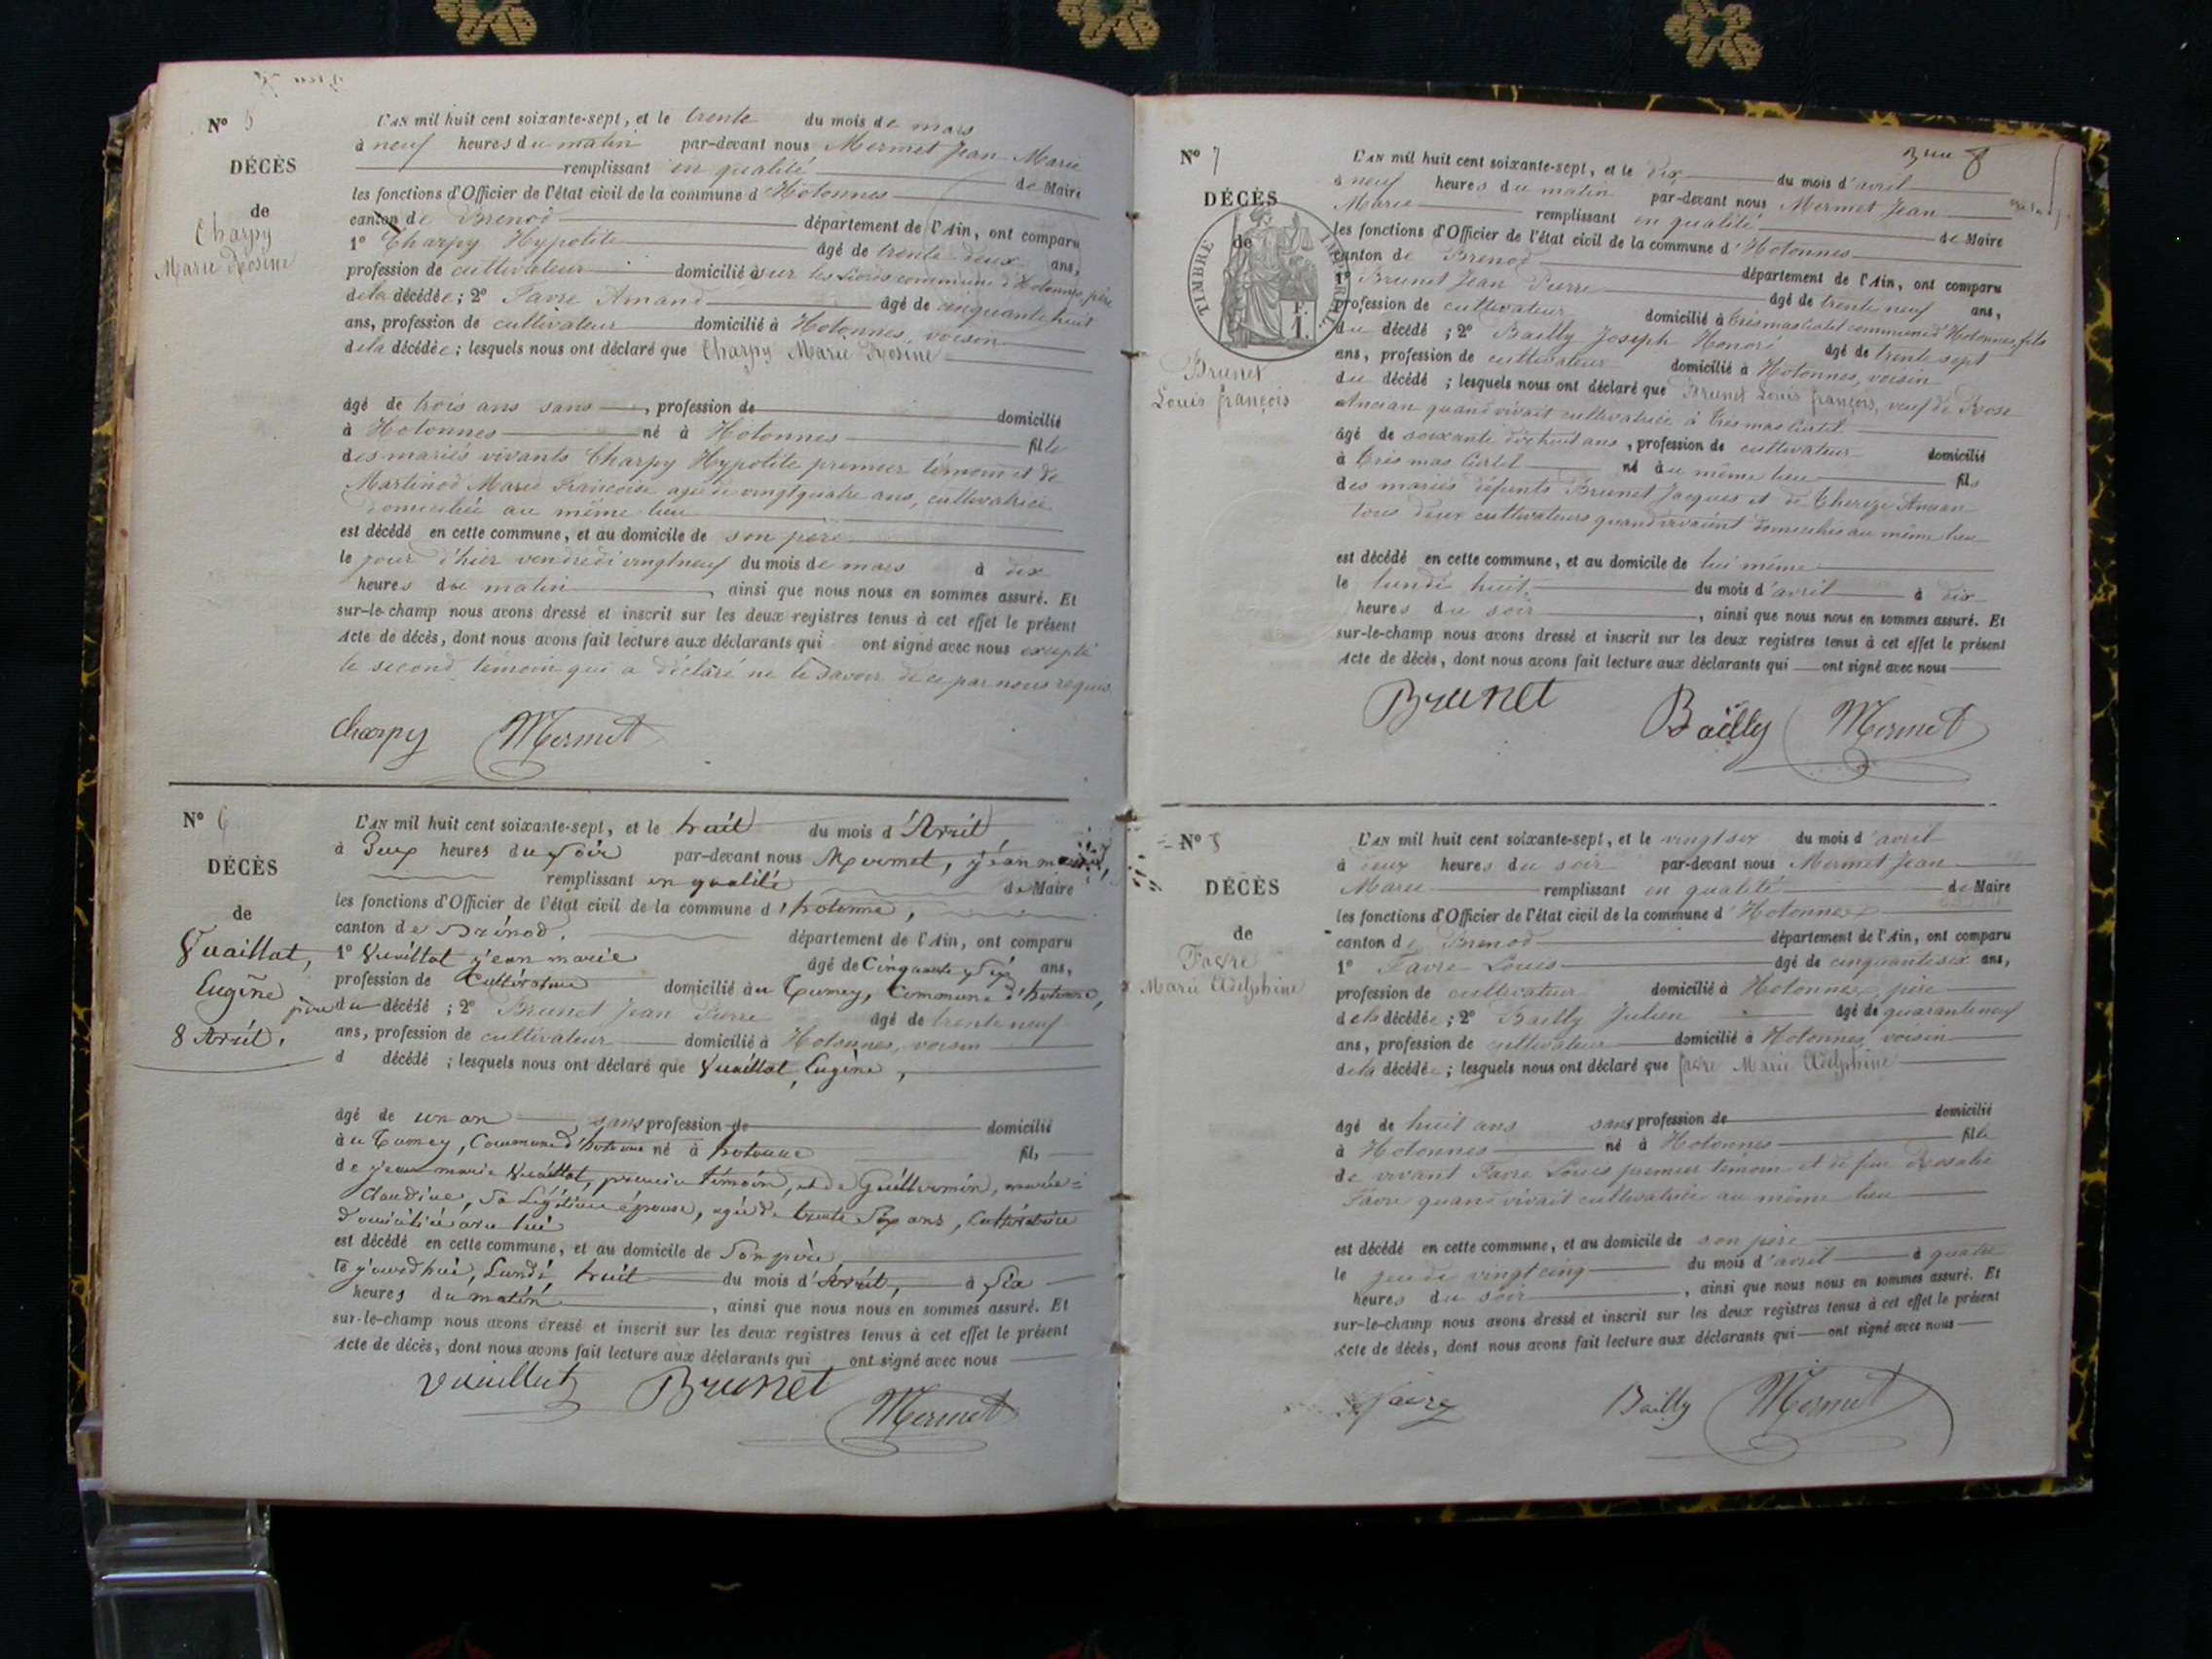 N° 5
DÉCÈS
de
Charpy
Marie Rosine
L'AN mil huit cent soixante-sept, et le trente du mois de mars
à neuf heures du matin par-devant nous Mermet Jean Marie
remplissant en qualité de Maire
les fonctions d'Officier de l'état civil de la commune d'Hotonnes
canton de Brenod département de l'Ain, ont comparu
1° Charpy Hypolite âgé de trente deux ans,
profession de cultivateur domicilié à sur les commune d'Hotonnes, père
de la décédée; 2° Favre Amand âgé de cinquante huit
ans, profession de cultivateur domicilié à Hotonnes, voisin
de la décédée; lesquels nous ont déclaré que Charpy Marie Rosine
âgé de trois ans sans, profession de domicilié
à Hotonnes né à Hotonnes fille
des mariés vivants Charpy Hypolite premier témoin et de
Martinod Marie Françoise agée de vingt quatre ans, cultivatrice
domiciliée au même lieu
est décédé en cette commune, et au domicile de son père
le jour d'hier vendredi vingt neuf du mois de mars à dix
heures du matin, ainsi que nous nous en sommes assuré. Et
sur-le-champ nous avons dressé et inscrit sur les deux registres tenus à cet effet le présent
Acte de décès, dont nous avons fait lecture aux déclarants qui ont signé avec nous excepté
le second témoin qui a déclaré ne le savoir de ce par nous requis
Charpy Mermet
N° 6
DÉCÈS
de
Vuaillat,
Eugène
8 Avril.
L'AN mil huit cent soixante-sept, et le huit du mois d'Avril
à Deux heures du Soir par-devant nous Mermet, jean marie,
remplissant en qualité de Maire
les fonctions d'Officier de l'état civil de la commune d'hotonne,
canton de Brénod. département de l'Ain, ont comparu
1° Vuaillat jean marie âgé de Cinquante Six ans,
profession de Cultivateur domicilié à au Tumey, Commune d'hotonne,
père du décédé; 2° Brunet Jean Pierre âgé de trente neuf
ans, profession de cultivateur domicilié à Hotonnes, voisin
d décédé; lesquels nous ont déclaré que Vuaillat, Eugène,
âgé de un an, sans profession de domicilié
à au Tumey, Commune d'hotonne né à hotonne fils
de jean marie Vuaillat, premier témoin, et de Guillermin, marie=
Claudine, Sa Légitime épouse, agée de trente Six ans, Cultivatrice
Domiciliée avec lui
est décédé en cette commune, et au domicile de Son père,
le jourdhui, Lundi, huit du mois d'Avril, à Six
heures du matin, ainsi que nous nous en sommes assuré. Et
sur-le-champ nous avons dressé et inscrit sur les deux registres tenus à cet effet le présent
Acte de décès, dont nous avons fait lecture aux déclarants qui ont signé avec nous
Vuaillat Brunet
Mermet
N° 7
DÉCÈS
de
TIMBRE IMPÉRIAL
Brunet
Louis françois
8
L'AN mil huit cent soixante-sept, et le dix du mois d'avril
à neuf heures du matin par-devant nous Mermet Jean
Marie remplissant en qualité de Maire
les fonctions d'Officier de l'état civil de la commune d'Hotonnes
canton de Brenod département de l'Ain, ont comparu
1° Brunet Jean Pierre âgé de trente neuf ans,
profession de cultivateur domicilié à commune d'Hotonnes, fils
du décédé; 2° Bailly Joseph Honoré âgé de trente sept
ans, profession de cultivateur domicilié à Hotonnes, voisin
du décédé; lesquels nous ont déclaré que Brunet Louis françois, veuf de Rose
Ancian quand vivait cultivatrice à
âgé de soixante dix huit ans, profession de cultivateur domicilié
à né au même lieu fils
des mariés défunts Brunet Jacques et de Thereze Ancian
tous deux cultivateurs quand vivaient domiciliés au même lieu
est décédé en cette commune, et au domicile de lui même
le lundi huit du mois d'avril à dix
heures du soir, ainsi que nous nous en sommes assuré. Et
sur-le-champ nous avons dressé et inscrit sur les deux registres tenus à cet effet le présent
Acte de décès, dont nous avons fait lecture aux déclarants qui ont signé avec nous
Brunet Bailly Mermet
N° 8
DÉCÈS
de
Favre
Marie Adelphine
L'AN mil huit cent soixante-sept, et le vingt six du mois d'avril
à deux heures du soir par-devant nous Mermet Jean
Marie remplissant en qualité de Maire
les fonctions d'Officier de l'état civil de la commune d'Hotonnes
canton de Brenod département de l'Ain, ont comparu
1° Favre Louis âgé de cinquante six ans,
profession de cultivateur domicilié à Hotonnes, père
de la décédée; 2° Bailly Julien âgé de quarante neuf
ans, profession de cultivateur domicilié à Hotonnes, voisin
de la décédée; lesquels nous ont déclaré que favre Marie Adelphine
âgé de huit ans sans profession de domicilié
à Hotonnes né à Hotonnes fille
de vivant Favre Louis premier temoin et de feue Rosalie
Favre quand vivait cultivatrice au même lieu
est décédé en cette commune, et au domicile de son père
le jeudi vingt cinq du mois d'avril à quatre
heures du soir, ainsi que nous nous en sommes assuré. Et
sur-le-champ nous avons dressé et inscrit sur les deux registres tenus à cet effet le présent
Acte de décès, dont nous avons fait lecture aux déclarants qui ont signé avec nous
favre Bailly Mermet